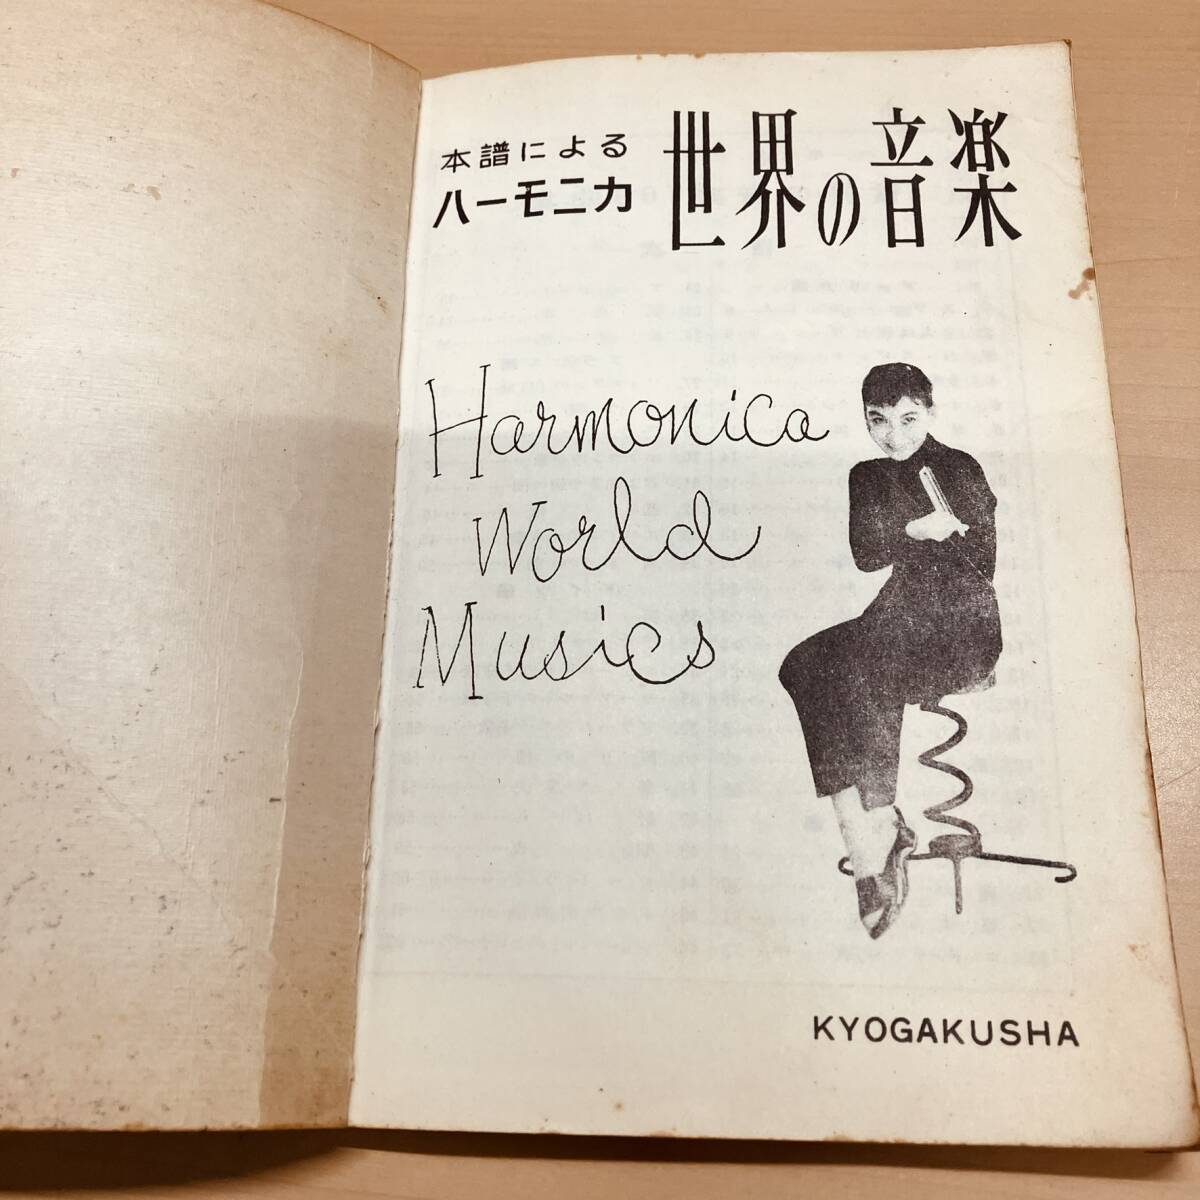 本譜による
ハーモニカ
世界の音楽
Harmonica
World
Musics
KYOGAKUSHA